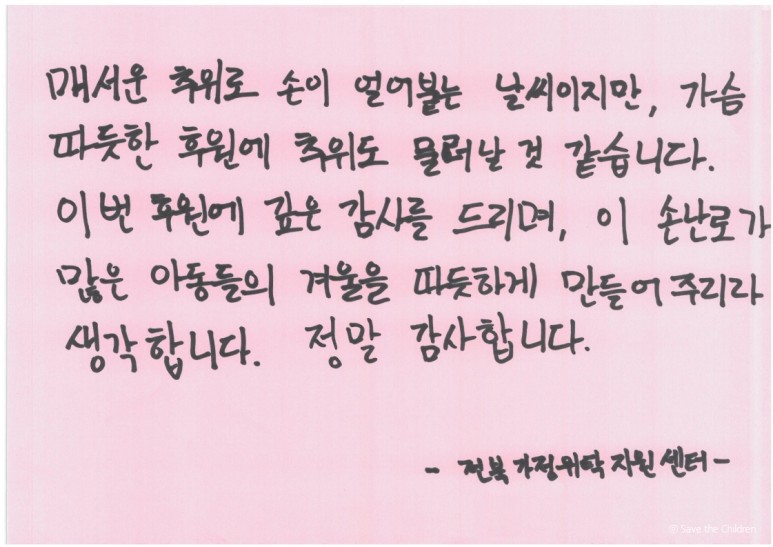 매서운 추위로 손이 얼어붙는 날씨이지만, 가슴
따듯한 후원에 추위도 물러날 것 같습니다.
이번 후원에 깊은 감사를 드리며, 이 손난로가
많은 아동들의 겨울을 따듯하게 만들어주리라
생각합니다. 정말 감사합니다.
- 전북가정위탁지원센터 -
© Save the Children